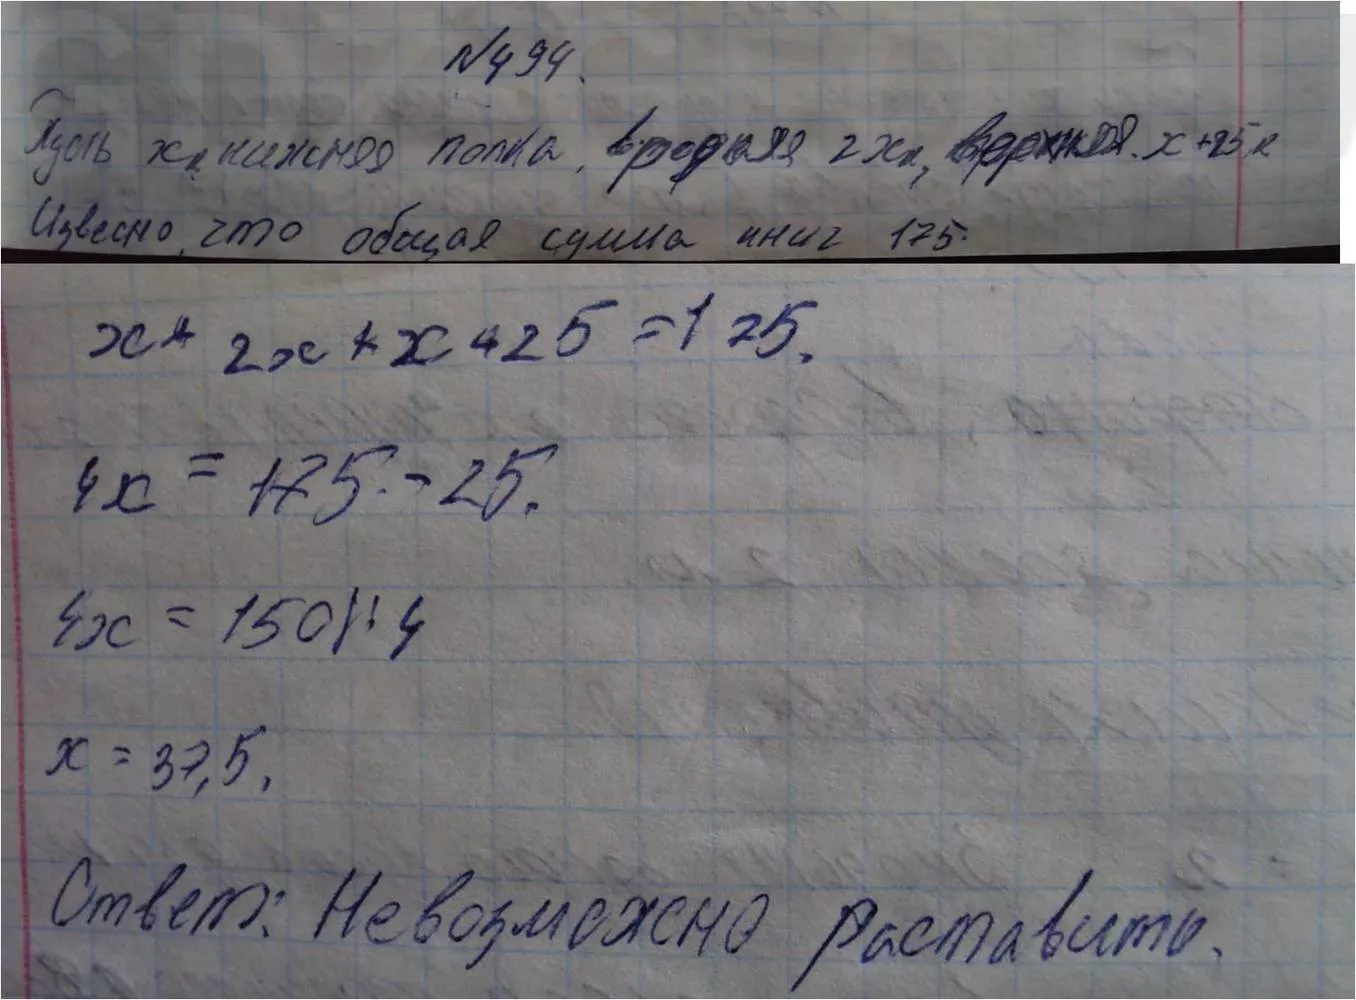 №494.
Пусть х к нижняя полка, средняя 2х к, верхняя. х +25 к
Извесно, что общая сумма книг 175.
х + 2х + х + 25 = 175.
4х = 175. - 25.
4х = 150 |: 4
х = 37,5.
Ответ: Невозможно раставить.